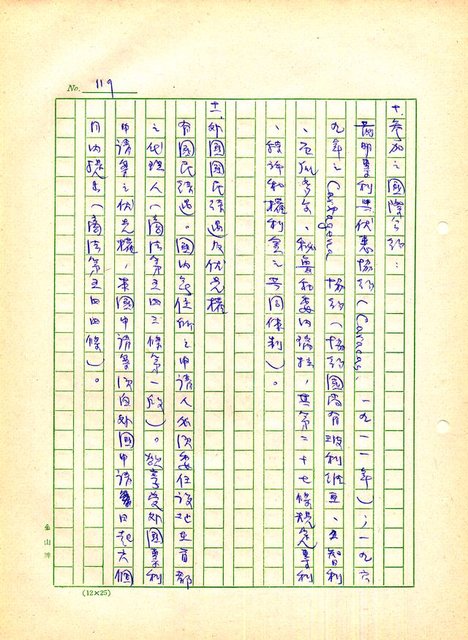 No. 119
十、參加之國際合約：
發明專利與優惠協約(Caracas，一九一一年)；一九六
九年之Cartagena協約(協約國尚有玻利維亞、智利
、厄瓜多尔、秘魯和委內瑞拉，其第二十七條規定專利
、特許和權利金之共同体制)。
十一、外國國民待遇及优先權
有國民待遇。國內無住所之申請人必須委任設址在首都
之代理人(商法第五四三條第一款)。欲享受外國專利
申請案之优先權，本國申請案須自外國申請日起六個
月內提出(商法第五四四條)。
金山
(12×25)